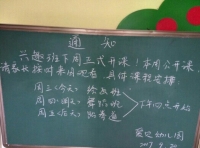 通 知
兴趣班下周正式开课！本周公开课
请家长按时来园 具体课程安排：
周三（今天） 绘画班
周四（明天） 舞蹈班
周五（后天） 跆拳道
下午四点开始
幼儿园
2017.9.20